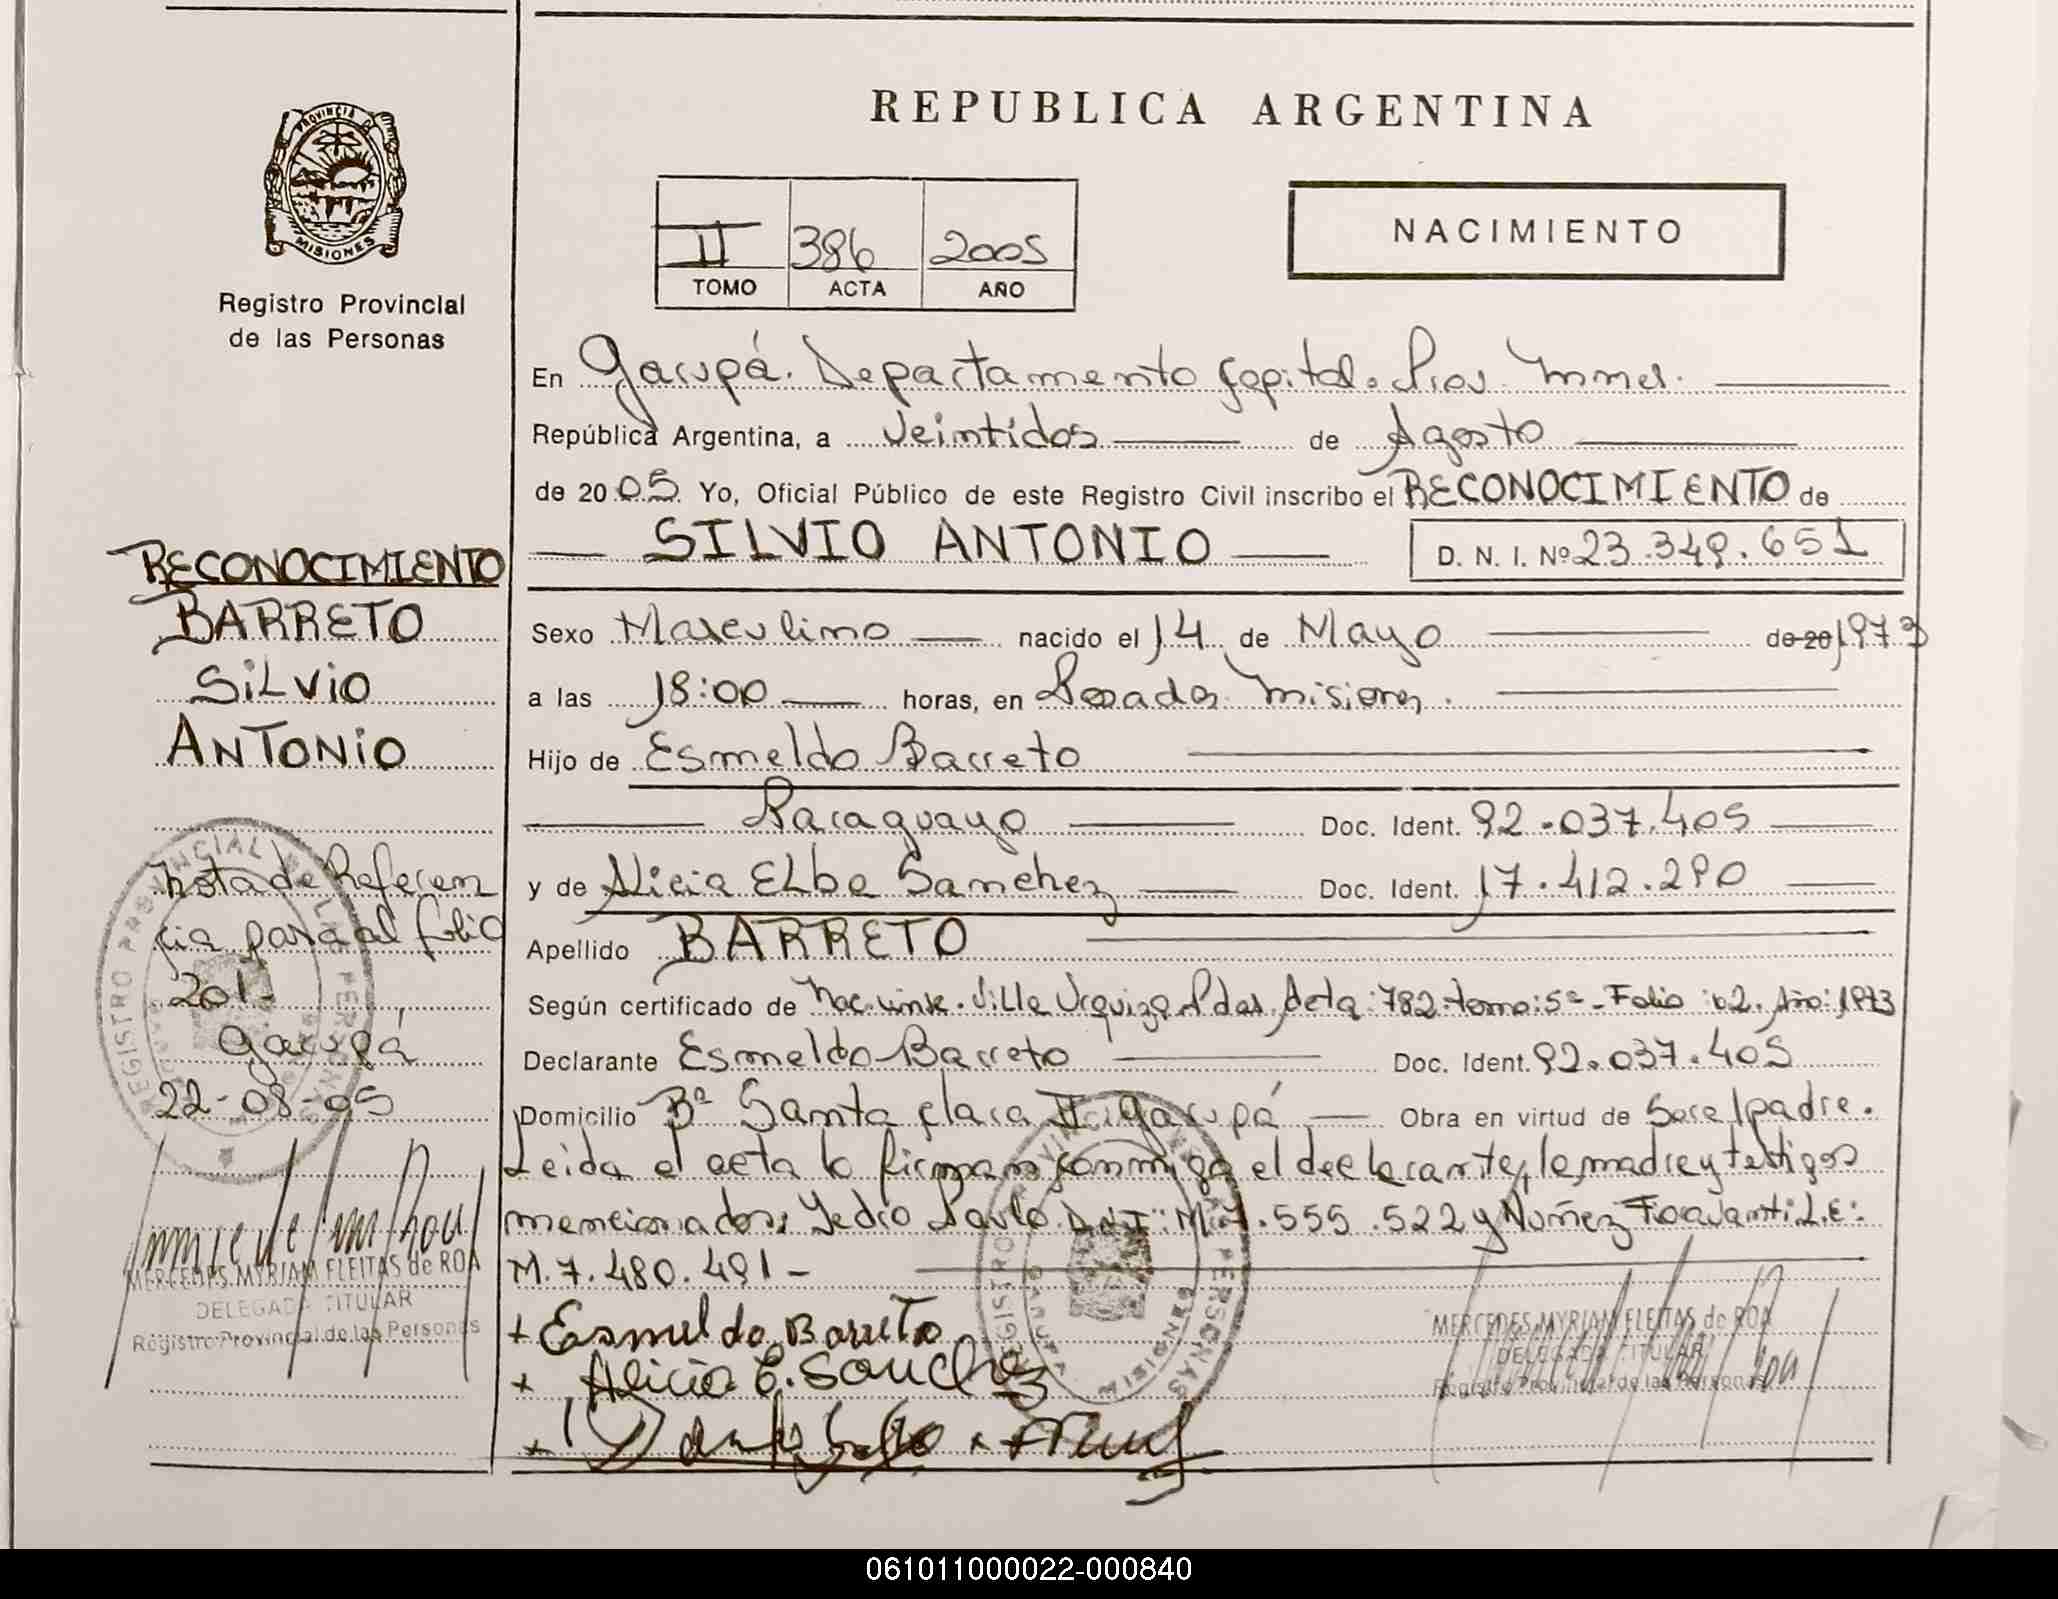 REPUBLICA ARGENTINA
PROVINCIA DE
MISIONES
Registro Provincial
de las Personas
II 386 2005
TOMO ACTA AÑO
NACIMIENTO
En Garupá. Departamento Capital. Prov. Mnes.
República Argentina, a Veintidos de Agosto
de 2005 Yo, Oficial Público de este Registro Civil inscribo el RECONOCIMIENTO de
SILVIO ANTONIO D. N. I. Nº 23.349.651
Sexo Masculino nacido el 14 de Mayo de 20 1973
a las 18:00 horas, en Posadas Misiones.
Hijo de Esmeldo Barreto
Paraguayo Doc. Ident. 92.037.405
y de Alicia Elba Sanchez Doc. Ident. 17.412.290
Apellido BARRETO
Según certificado de Nac. Villa Urquiza Pdas. Acta: 782. tomo: 5º - Folio: 62. Año: 1973
Declarante Esmeldo Barreto Doc. Ident. 92.037.405
Domicilio Bº Santa Clara II Garupá Obra en virtud de Ser el padre.
Leida el acta la firman conmigo el declarante, la madre y testigos
mencionados; Pedro Paulo D.N.I: M.7.555.522 y Nuñez Fioavanti L.E:
M.7.480.491-
+ Esmeldo Barreto
+ Alicia E. Sanchez
MERCEDES MYRIAM FLEITAS de ROA
DELEGADA TITULAR
Registro Provincial de las Personas
RECONOCIMIENTO
BARRETO
SILVIO
ANTONIO
Nota de Referen
cia pasa al folio
201-
Garupá
22-08-05
MERCEDES MYRIAM FLEITAS de ROA
DELEGADA TITULAR
Registro Provincial de las Personas
REGISTRO PROVINCIAL DE LAS PERSONAS
REGISTRO PROVINCIAL DE LAS PERSONAS
061011000022-000840